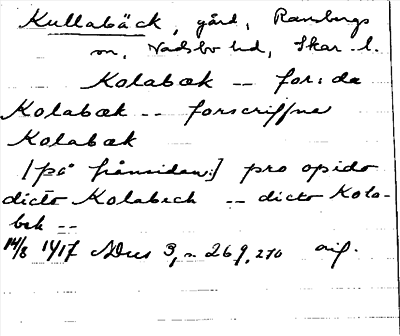 Kullabäck, gård, Ransbergs
sn, Vadsbo hd, Skar. l.
Kolabæk -- for:da
Kolabæk -- forscriffne
Kolabæk
[på frånsidan:] pro opido
dicto Kolabeck -- dicto Kola-
bek --
14/8 1417 ADus 3, s. 269, 270 orig.